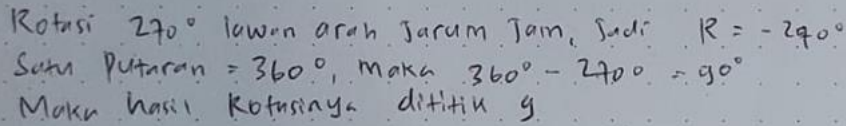 Rotasi 270° lawan arah Jarum Jam, Jadi R = -270°
Satu Putaran = 360°, Maka 360° - 270° = 90°
Maka hasil Rotasinya dititik g